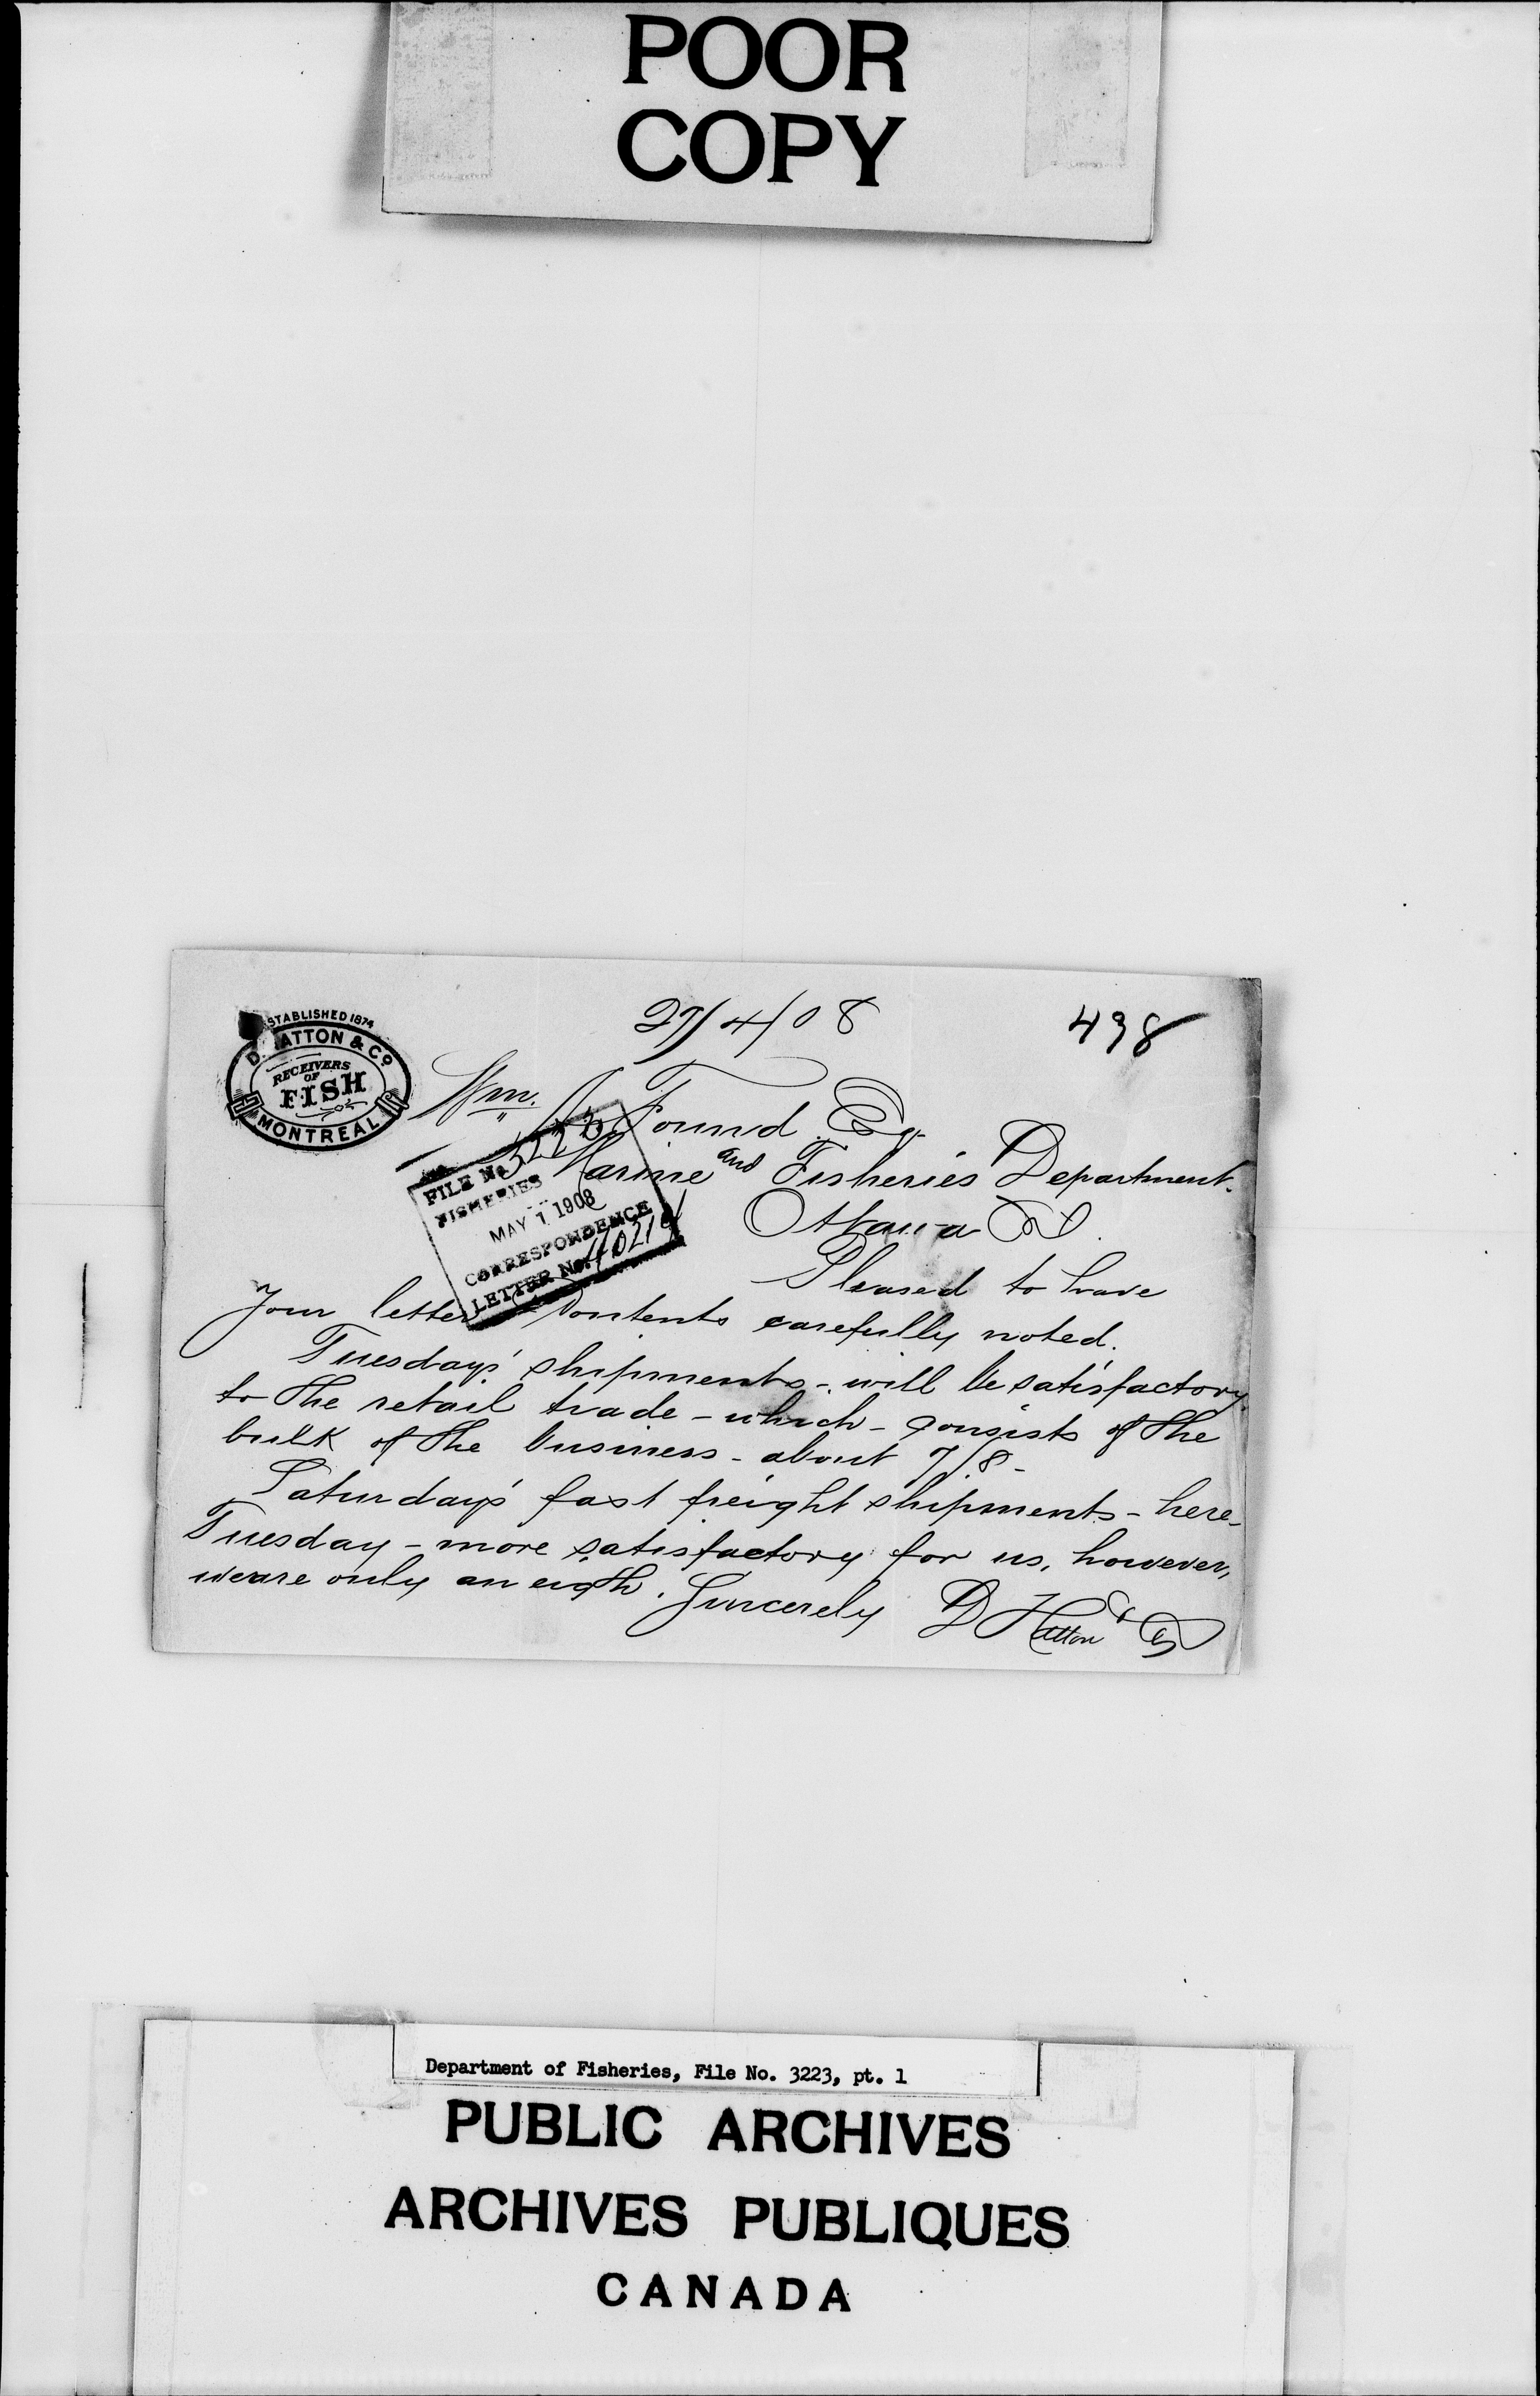 POOR
COPY
27/4/08
498
ESTABLISHED 1874
D. HATTON & CO
RECEIVERS
OF
FISH
MONTREAL
Wm. Found Esq
Marine and Fisheries Department.
Ottawa
FILE No 3223
FISHERIES
MAY 1 1908
CORRESPONDENCE
LETTER No.
Pleased to have
Your letter Contents carefully noted.
Tuesday's shipments - will be satisfactory
to the retail trade - which - consists of the
bulk of the business - about 7/8 -
Saturday's fast freight shipments - here -
Tuesday - more satisfactory for us, however,
we are only an eigth. Sincerely D Hatton & Co
Department of Fisheries, File No. 3223, pt. 1
PUBLIC ARCHIVES
ARCHIVES PUBLIQUES
CANADA